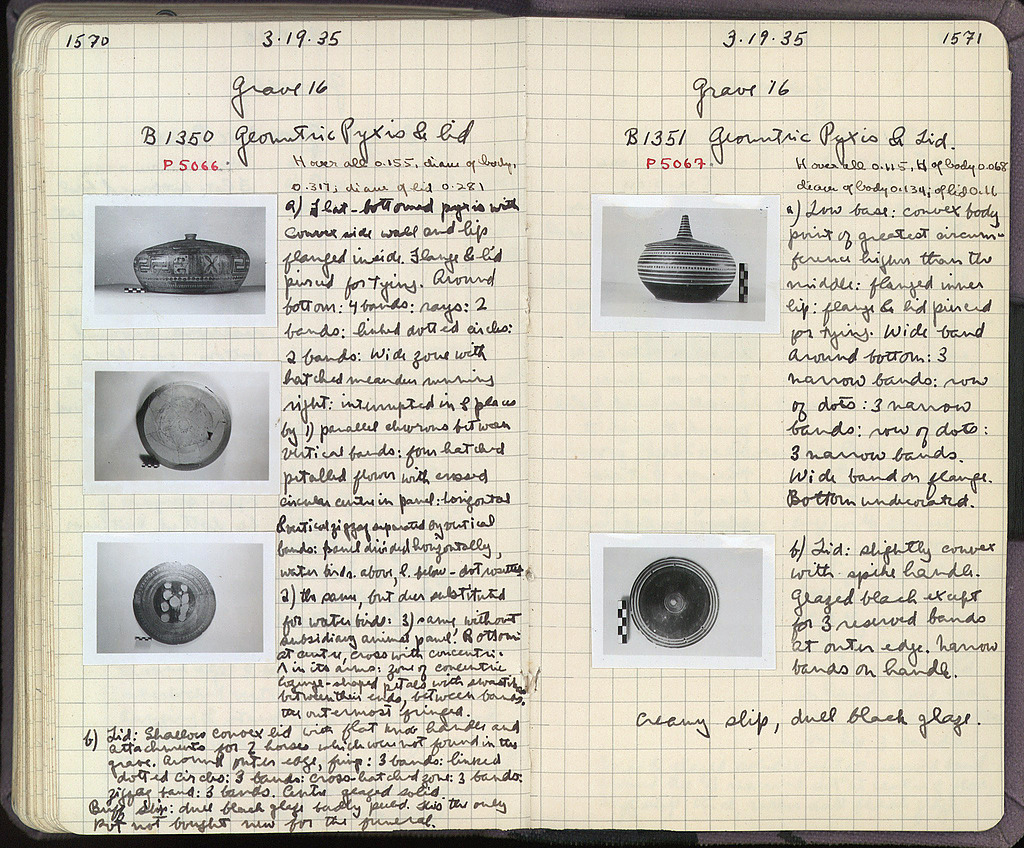 1570
3.19.35
Grave 16
B 1350 Geometric Pyxis & lid
P 5066.
H over all 0.155, diam of body,
0.317; diam of lid 0.281
a) Flat-bottomed pyxis with
convex side wall and lip
flanged inside. Flange & lid
pierced for tying. Around
bottom: 4 bands: rays: 2
bands: linked dotted circles:
2 bands: Wide zone with
hatched meander running
right: interrupted in 8 places
by 1) parallel chevrons between
vertical bands: four hatched
petalled flower with crossed
circular centre in panel: horizontal
& vertical zigzag separated by vertical
bands: panel divided horizontally,
water birds above, & below - dot rosettes
2) the same, but deer substituted
for water birds: 3) same without
subsidiary animal panel. Bottom:
at centre, cross with concentric
Λ in its arms: zone of concentric
lozenge-shaped petals with swastikas
between their ends, between bands,
the outermost fringed.
b) Lid: Shallow convex lid with flat knob handle and
attachments for 2 horses which were not found in the
grave. Around outer edge, : 3 bands: linked
dotted circles: 3 bands: cross-hatched zone: 3 bands:
zigzag band: 3 bands. Centre glazed solid
Buff slip: dull black glaze badly peeled. This the only
pot not bought new for the funeral.
3.19.35
1571
Grave 16
B 1351 Geometric Pyxis & Lid.
P 5067.
H over all 0.115, H of body 0.068
diam of body 0.134; of lid 0.11
a) Low base: convex body
point of greatest circum-
ference higher than the
middle: flanged inner
lip: flange & lid pierced
for tying. Wide band
around bottom: 3
narrow bands: row
of dots: 3 narrow
bands: row of dots:
3 narrow bands.
Wide band on flange.
Bottom undecorated.
b) Lid: slightly convex
with spike handle.
Glazed black except
for 3 reserved bands
at outer edge. Narrow
bands on handle.
Creamy slip, dull black glaze.